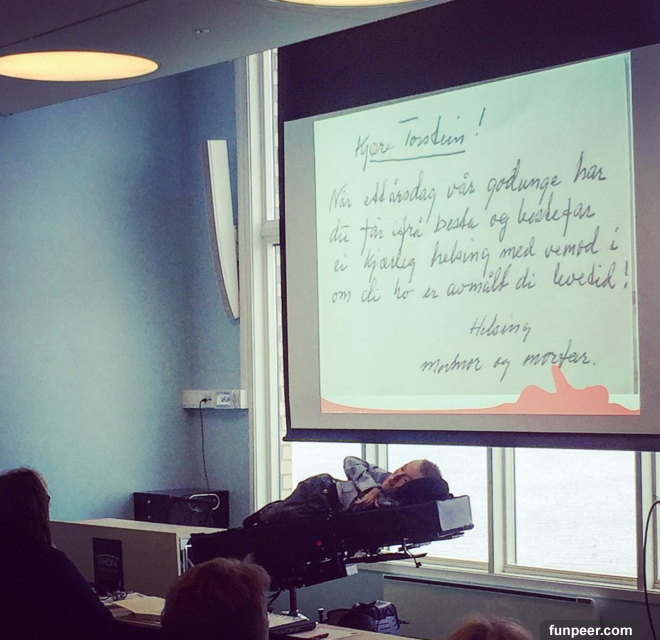 Kjære Torstein!
Når ettårsdag vår godunge har
du får ifrå besta og bestefar
ei kjærleg helsing med vemod i
om di ho er avmålt di levetid!
Helsing
mormor og morfar.
THON
funpeer.com